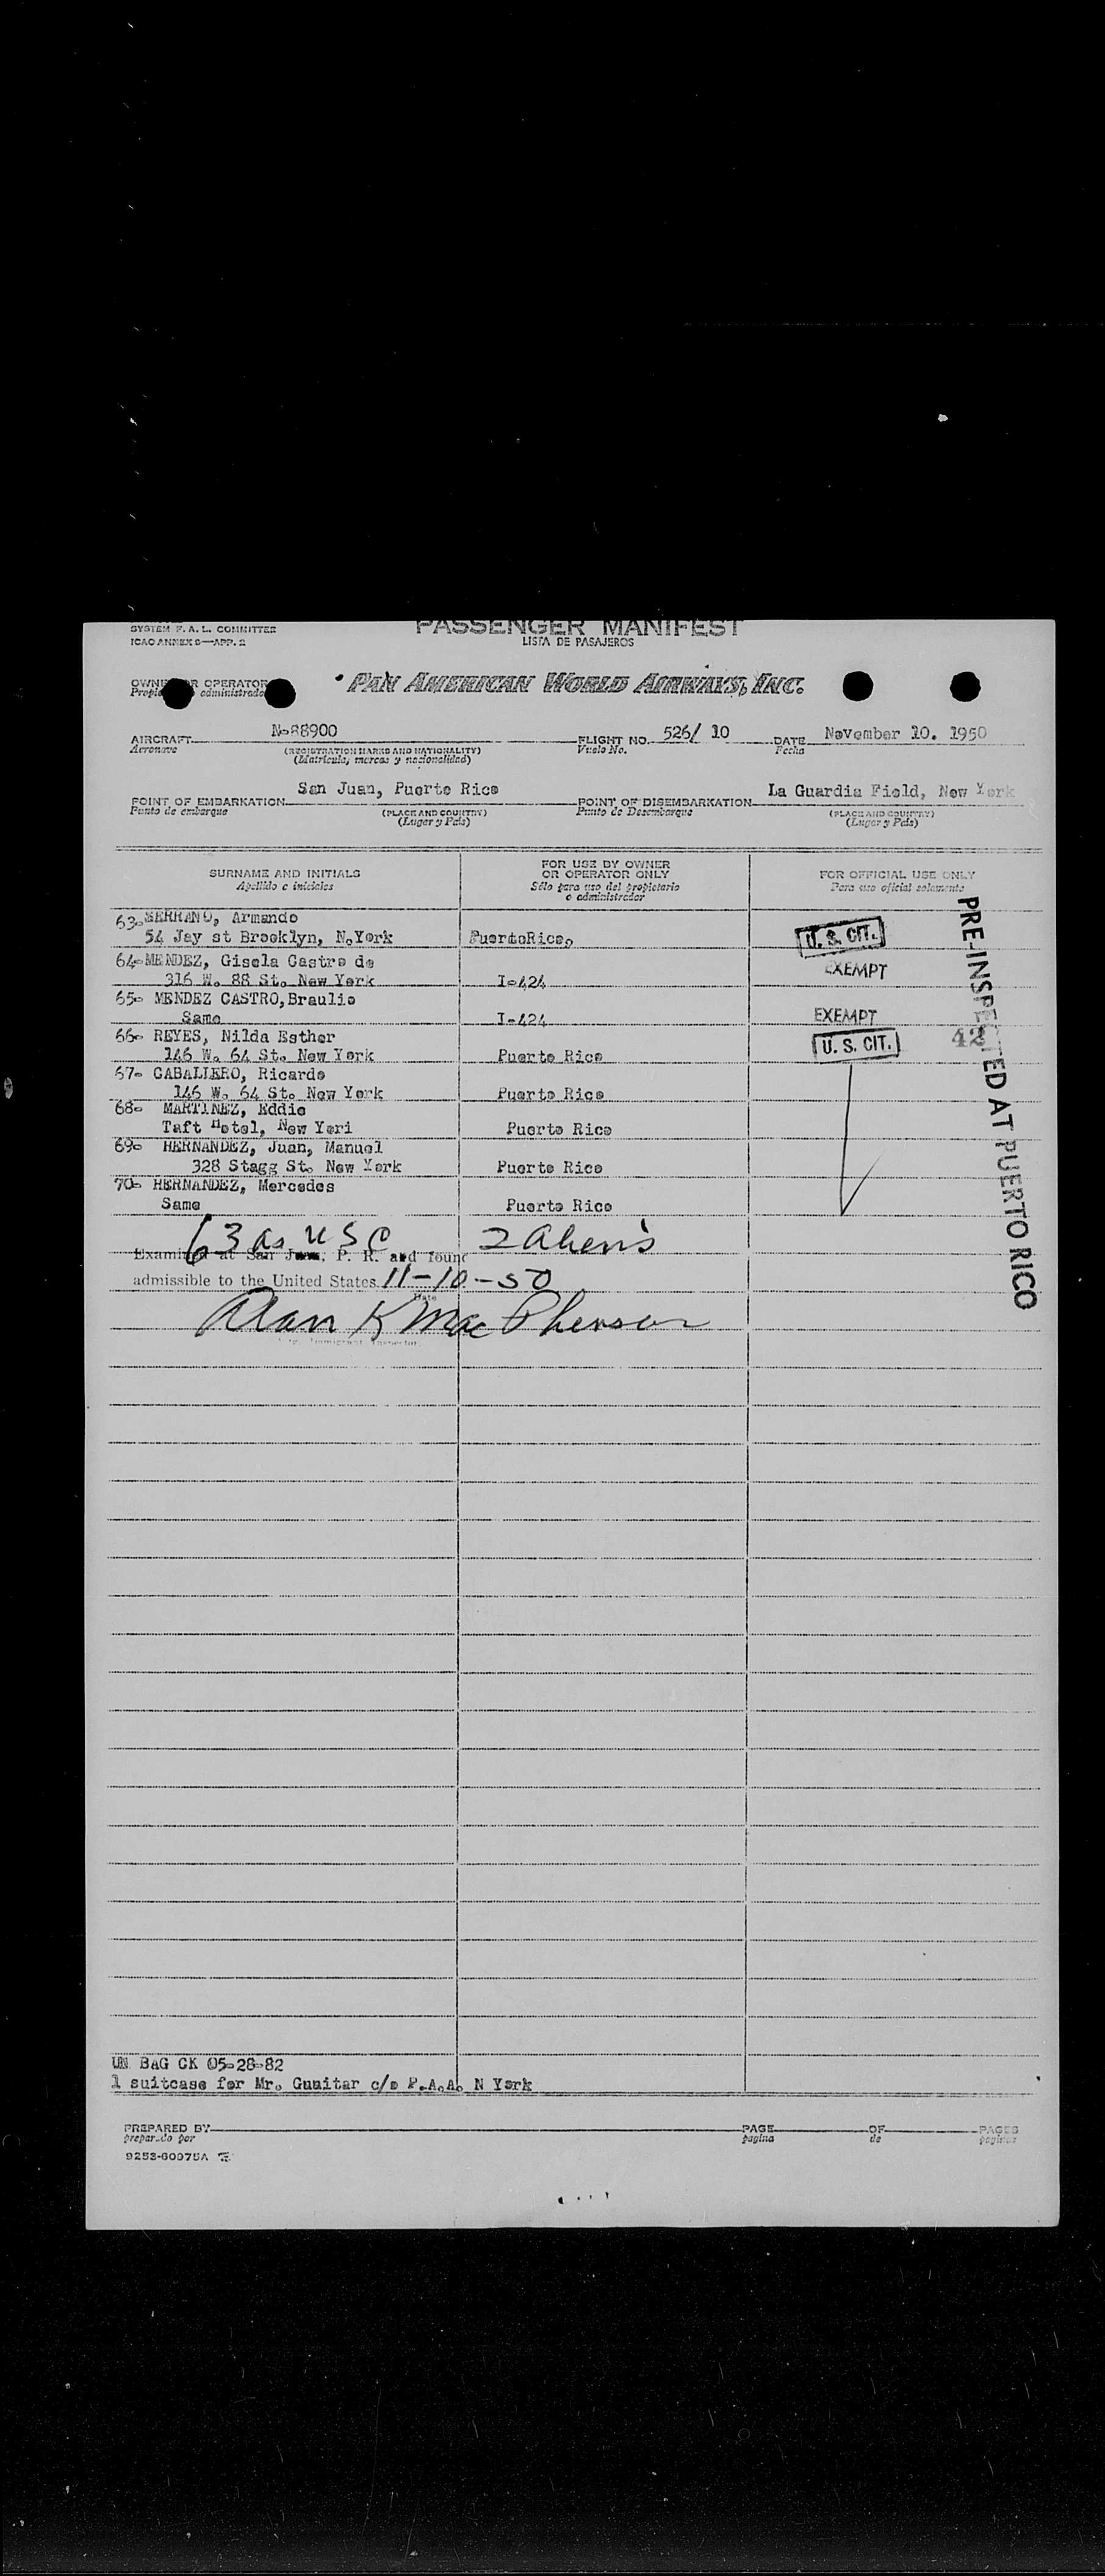 SYSTEM F. A. L. COMMITTEE
ICAO ANNEX 9—APP. 2
PASSENGER MANIFEST
LISTA DE PASAJEROS
OWNER OR OPERATOR
Propie administrado
PAN AMERICAN WORLD AIRWAYS, INC.
AIRCRAFT N-88900 FLIGHT NO. 526/ 10 DATE November 10. 1950
Aeronave (REGISTRATION MARKS AND NATIONALITY) Vuelo No. Fecha
(Matricula, marcas y nacionalidad)
POINT OF EMBARKATION San Juan, Puerto Rico POINT OF DISEMBARKATION La Guardia Field, New York
Punto de embarque (PLACE AND COUNTRY) Punto de Desembarque (PLACE AND COUNTRY)
(Lugar y Pais) (Lugar y Pais)
SURNAME AND INITIALS
Apellido e iniciales
FOR USE BY OWNER
OR OPERATOR ONLY
Sólo para uso del propietario
o administrador
FOR OFFICIAL USE ONLY
Para uso oficial solamente
63- SERRANO, Armando
54 Jay st Brooklyn, N.York PuertoRico. U. S. CIT.
64- MENDEZ, Gisela Castro de EXEMPT
316 W. 88 St. New York I-424
65- MENDEZ CASTRO, Braulio
Same I-424 EXEMPT
66- REYES, Nilda Esther
146 W. 64 St. New York Puerto Rico U. S. CIT. 42
67- CABALLERO, Ricardo
146 W. 64 St. New York Puerto Rico
68- MARTINEZ, Eddie
Taft Hotel, New Yori Puerto Rico
69- HERNANDEZ, Juan, Manuel
328 Stagg St. New York Puerto Rico
70- HERNANDEZ, Mercedes
Same Puerto Rico
PRE-INSPECTED AT PUERTO RICO
63 as USC 2 Alien's
Examined at San Juan, P. R. and found
admissible to the United States 11-10-50
Date
Alan K MacPherson
Immigrant Inspector
UN BAG CK 05-28-82
1 suitcase for Mr. Guaitar c/o P.A.A. N York
PREPARED BY PAGE OF PAGES
preparado por pagina de paginas
9253-60075A